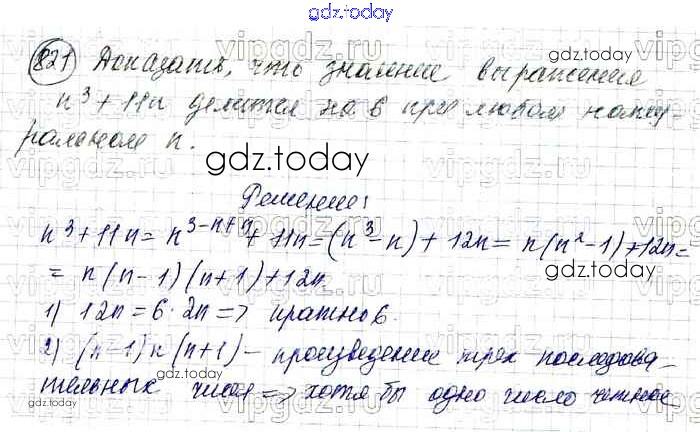 gdz.today
821 Доказать, что значение выражения
gdz.today
n³+11n делится на 6 при любом нату-
ральном n.
gdz.today
Решение:
n³+11n= n³⁻ⁿ⁺ⁿ+11n=(n³-n)+12n= n(n²-1)+12n=
= n(n-1)(n+1)+12n
gdz.today
1) 12n=6·2n=> кратно 6.
2) (n-1)n(n+1) - произведение трех последова-
тельных чисел => хотя бы одно число четное
gdz.today
gdz.today
vipgdz.ru